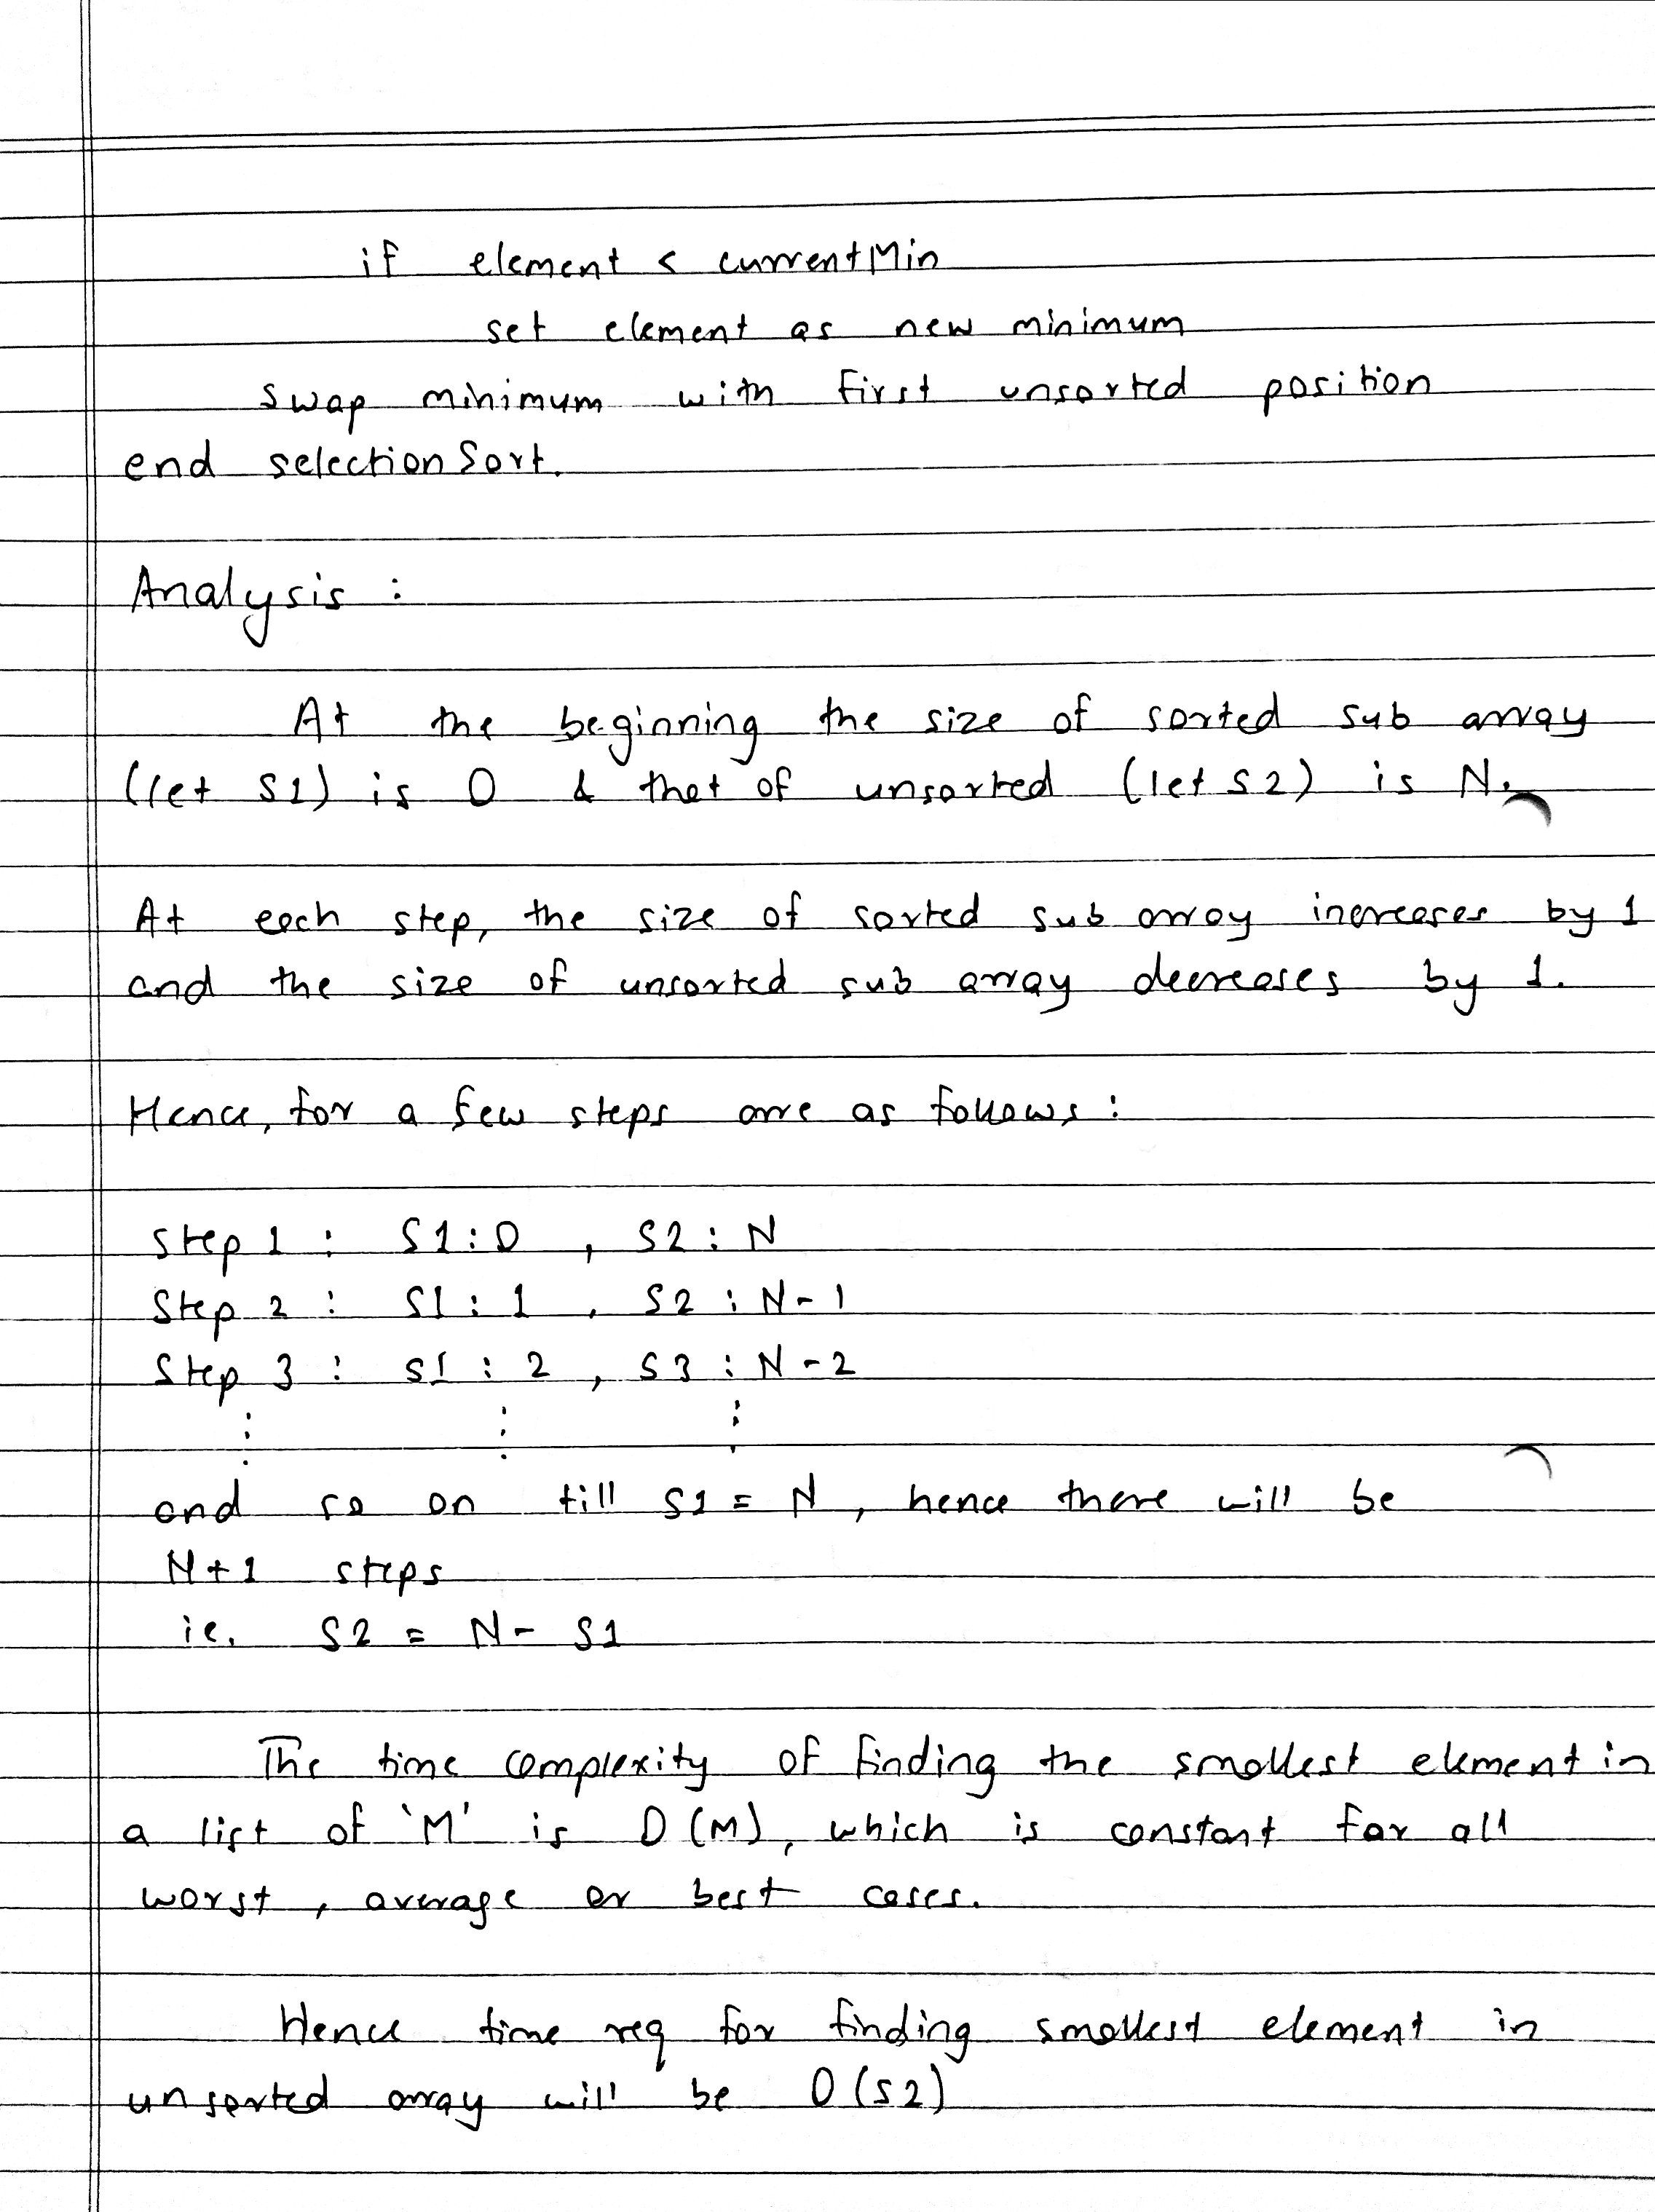 if element < currentMin
set element as new minimum
swap minimum with first unsorted position
end selectionSort.
Analysis :
At the beginning the size of sorted sub array
(let S1) is 0 & that of unsorted (let S2) is N.
At each step, the size of sorted sub array increases by 1
and the size of unsorted sub array decreases by 1.
Hence, for a few steps are as follows :
Step 1 : S1 : 0 , S2 : N
Step 2 : S1 : 1 , S2 : N-1
Step 3 : S1 : 2 , S3 : N-2
⋮ ⋮ ⋮
and so on till S1 = N, hence there will be
N+1 steps
ie. S2 = N - S1
The time complexity of finding the smallest element in
a list of 'M' is O(M), which is constant for all
worst, average or best cases.
Hence time req for finding smallest element in
unsorted array will be O(S2)